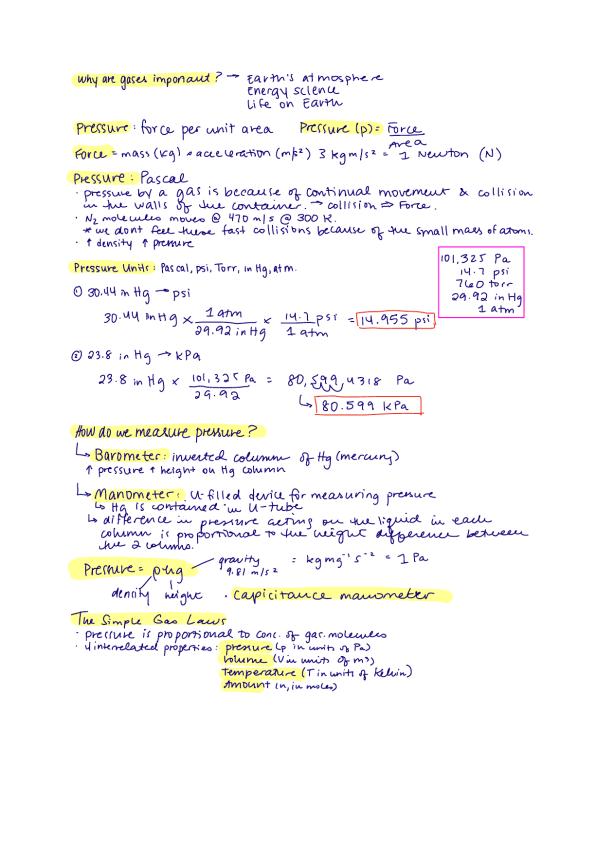 why are gases important? → Earth's atmosphere
Energy science
Life on Earth
Pressure: force per unit area Pressure (p) = Force / Area
Force = mass (kg) * acceleration (m/s²) 3 kg m/s² = 1 Newton (N)
Pressure: Pascal
· pressure by a gas is because of continual movement & collision
in the walls of the container. → collision ⇒ Force.
· N₂ molecules moves @ 470 m/s @ 300 K.
* we dont feel these fast collisions because of the small mass of atoms.
· ↑ density ↑ pressure
Pressure Units: Pascal, psi, Torr, in Hg, atm.
101,325 Pa
14.7 psi
760 torr
29.92 in Hg
1 atm
① 30.44 in Hg → psi
30.44 in Hg × 1 atm / 29.92 in Hg × 14.7 psi / 1 atm = 14.955 psi
② 23.8 in Hg → kPa
23.8 in Hg × 101,325 Pa / 29.92 = 80,599.4318 Pa
↳ 80.599 kPa
How do we measure pressure?
↳ Barometer: inverted column of Hg (mercury)
↑ pressure ↑ height on Hg column
↳ Manometer: U-filled device for measuring pressure
↳ Hg is contained in U-tube
↳ difference in pressure acting on the liquid in each
column is proportional to the height difference between
the 2 columns.
Pressure = ρhg gravity 9.81 m/s² = kg m g⁻¹ s⁻² = 1 Pa
density height · capicitance manometer
The Simple Gas Laws
· pressure is proportional to conc. of gas molecules
· 4 interrelated properties: pressure (p in units of Pa)
volume (V in units of m³)
Temperature (T in units of Kelvin)
Amount (n, in moles)